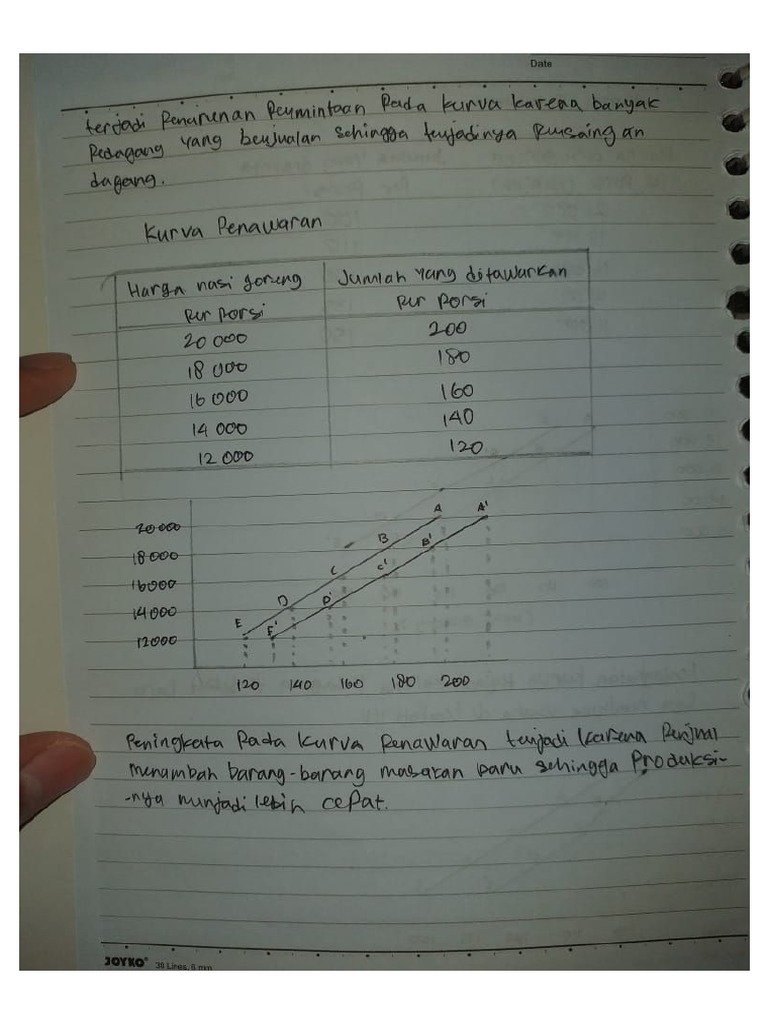 Date
terjadi Penurunan Permintaan Pada kurva karena banyak
Pedagang yang berjualan sehingga terjadinya Persaingan
dagang.
Kurva Penawaran
Harga nasi goreng Jumlah yang ditawarkan
Per Porsi Per Porsi
20 000 200
18 000 180
16 000 160
14 000 140
12 000 120
A A'
20 000
B B'
18 000
C C'
16 000
D D'
14 000
E E'
12 000
120 140 160 180 200
Peningkata Pada Kurva Penawaran terjadi karena Penjual
menambah barang-barang masakan baru sehingga Produksi-
-nya menjadi lebih cepat.
JOYKO® 30 Lines, 6 mm